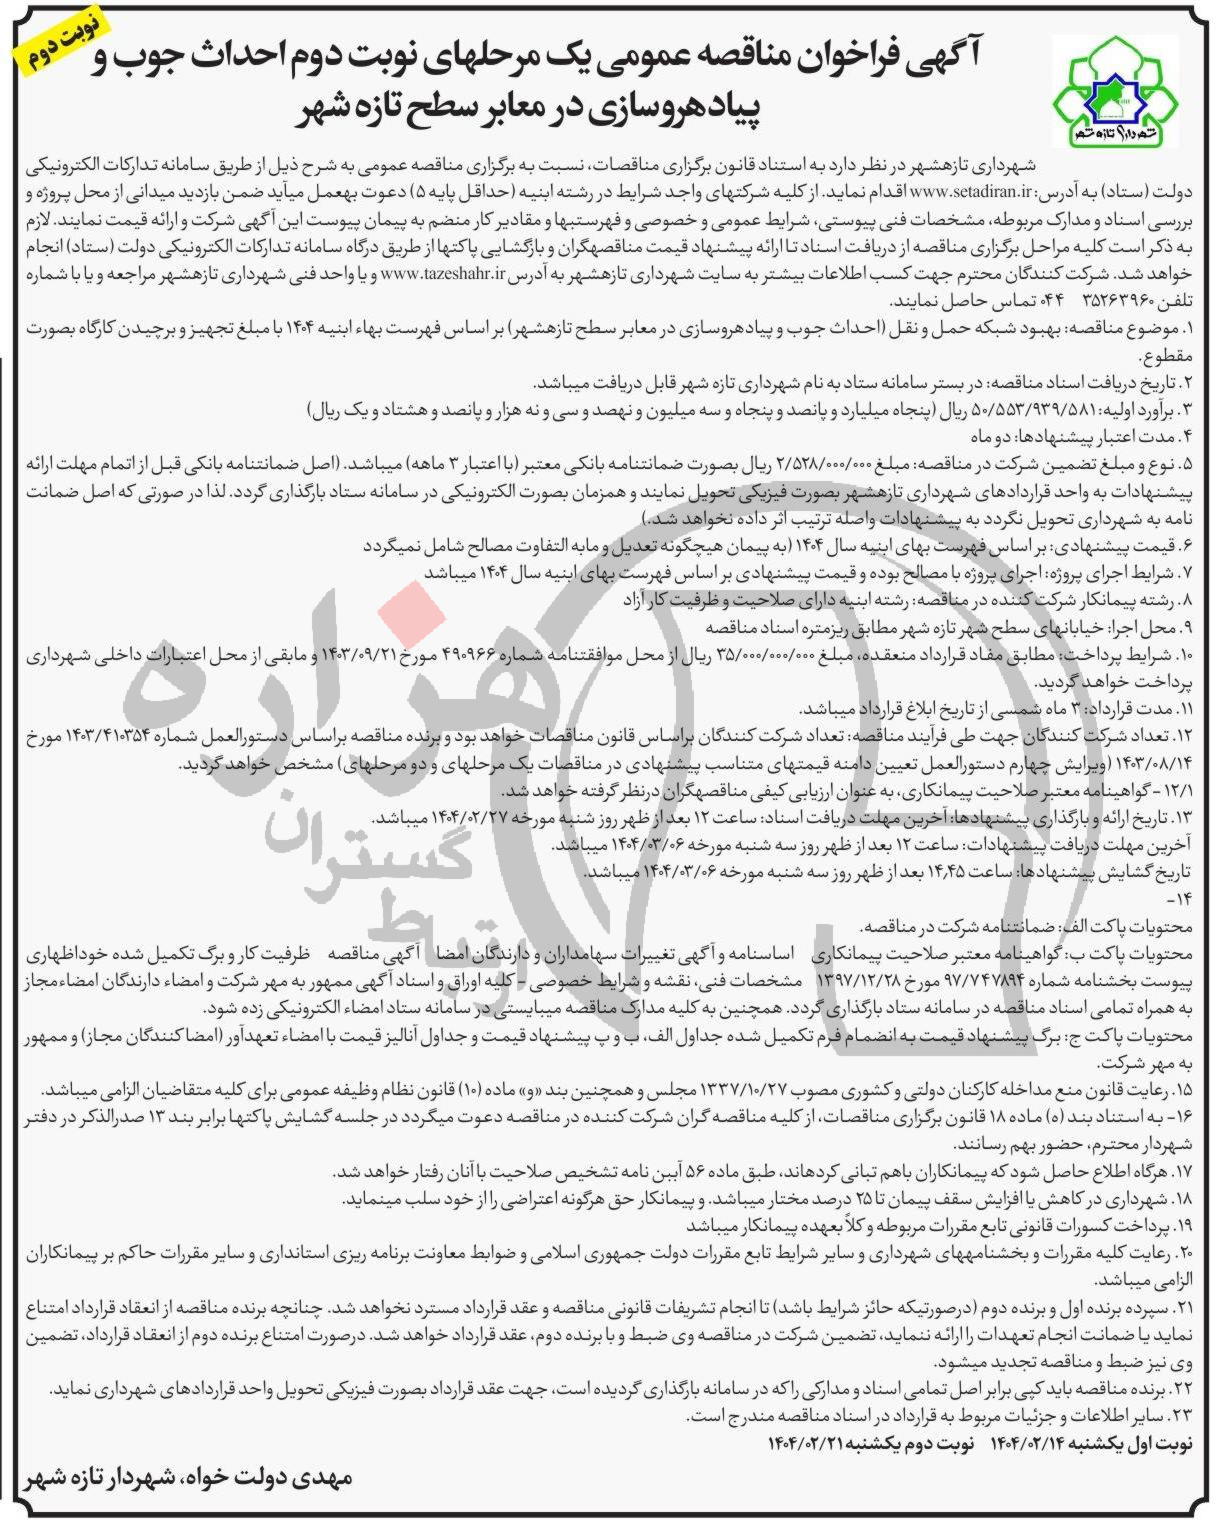 نوبت دوم
آگهی فراخوان مناقصه عمومی یک مرحلهای نوبت دوم احداث جوب و
پیادهروسازی در معابر سطح تازه شهر
شهرداری تازه شهر
شهرداری تازهشهر در نظر دارد به استناد قانون برگزاری مناقصات، نسبت به برگزاری مناقصه عمومی به شرح ذیل از طریق سامانه تدارکات الکترونیکی
دولت (ستاد) به آدرس: www.setadiran.ir اقدام نماید. از کلیه شرکتهای واجد شرایط در رشته ابنیه (حداقل پایه ۵) دعوت بهعمل میآید ضمن بازدید میدانی از محل پروژه و
بررسی اسناد و مدارک مربوطه، مشخصات فنی پیوستی، شرایط عمومی و خصوصی و فهرستبها و مقادیر کار منضم به پیمان پیوست این آگهی شرکت و ارائه قیمت نمایند. لازم
به ذکر است کلیه مراحل برگزاری مناقصه از دریافت اسناد تا ارائه پیشنهاد قیمت مناقصهگران و بازگشایی پاکتها از طریق درگاه سامانه تدارکات الکترونیکی دولت (ستاد) انجام
خواهد شد. شرکت کنندگان محترم جهت کسب اطلاعات بیشتر به سایت شهرداری تازهشهر به آدرس www.tazeshahr.ir و یا واحد فنی شهرداری تازهشهر مراجعه و یا با شماره
تلفن ۳۵۲۶۳۹۶۰ ۰۴۴ تماس حاصل نمایند.
۱. موضوع مناقصه: بهبود شبکه حمل و نقل (احداث جوب و پیادهروسازی در معابر سطح تازهشهر) بر اساس فهرست بهاء ابنیه ۱۴۰۴ با مبلغ تجهیز و برچیدن کارگاه بصورت
مقطوع.
۲. تاریخ دریافت اسناد مناقصه: در بستر سامانه ستاد به نام شهرداری تازه شهر قابل دریافت میباشد.
۳. برآورد اولیه: ۵۰/۵۵۳/۹۳۹/۵۸۱ ریال (پنجاه میلیارد و پانصد و پنجاه و سه میلیون و نهصد و سی و نه هزار و پانصد و هشتاد و یک ریال)
۴. مدت اعتبار پیشنهادها: دو ماه
۵. نوع و مبلغ تضمین شرکت در مناقصه: مبلغ ۲/۵۲۸/۰۰۰/۰۰۰ ریال بصورت ضمانتنامه بانکی معتبر (با اعتبار ۳ ماهه) میباشد. (اصل ضمانتنامه بانکی قبل از اتمام مهلت ارائه
پیشنهادات به واحد قراردادهای شهرداری تازهشهر بصورت فیزیکی تحویل نمایند و همزمان بصورت الکترونیکی در سامانه ستاد بارگذاری گردد. لذا در صورتی که اصل ضمانت
نامه به شهرداری تحویل نگردد به پیشنهادات واصله ترتیب اثر داده نخواهد شد.)
۶. قیمت پیشنهادی: بر اساس فهرست بهای ابنیه سال ۱۴۰۴ (به پیمان هیچگونه تعدیل و مابه التفاوت مصالح شامل نمیگردد
۷. شرایط اجرای پروژه: اجرای پروژه با مصالح بوده و قیمت پیشنهادی بر اساس فهرست بهای ابنیه سال ۱۴۰۴ میباشد
۸. رشته پیمانکار شرکت کننده در مناقصه: رشته ابنیه دارای صلاحیت و ظرفیت کار آزاد
۹. محل اجرا: خیابانهای سطح شهر تازه شهر مطابق ریزمتره اسناد مناقصه
۱۰. شرایط پرداخت: مطابق مفاد قرارداد منعقده، مبلغ ۳۵/۰۰۰/۰۰۰/۰۰۰ ریال از محل موافقتنامه شماره ۴۹۰۹۶۶ مورخ ۱۴۰۳/۰۹/۲۱ و مابقی از محل اعتبارات داخلی شهرداری
پرداخت خواهد گردید.
۱۱. مدت قرارداد: ۳ ماه شمسی از تاریخ ابلاغ قرارداد میباشد.
۱۲. تعداد شرکت کنندگان جهت طی فرآیند مناقصه: تعداد شرکت کنندگان براساس قانون مناقصات خواهد بود و برنده مناقصه براساس دستورالعمل شماره ۱۴۰۳/۴۱۰۳۵۴ مورخ
۱۴۰۳/۰۸/۱۴ (ویرایش چهارم دستورالعمل تعیین دامنه قیمتهای متناسب پیشنهادی در مناقصات یک مرحلهای و دو مرحلهای) مشخص خواهد گردید.
۱۲/۱ - گواهینامه معتبر صلاحیت پیمانکاری، به عنوان ارزیابی کیفی مناقصهگران درنظر گرفته خواهد شد.
۱۳. تاریخ ارائه و بارگذاری پیشنهادها: آخرین مهلت دریافت اسناد: ساعت ۱۲ بعد از ظهر روز شنبه مورخه ۱۴۰۴/۰۲/۲۷ میباشد.
آخرین مهلت دریافت پیشنهادات: ساعت ۱۲ بعد از ظهر روز سه شنبه مورخه ۱۴۰۴/۰۳/۰۶ میباشد.
تاریخ گشایش پیشنهادها: ساعت ۱۴٫۴۵ بعد از ظهر روز سه شنبه مورخه ۱۴۰۴/۰۳/۰۶ میباشد.
۱۴-
محتویات پاکت الف: ضمانتنامه شرکت در مناقصه.
محتویات پاکت ب: گواهینامه معتبر صلاحیت پیمانکاری اساسنامه و آگهی تغییرات سهامداران و دارندگان امضا آگهی مناقصه ظرفیت کار و برگ تکمیل شده خوداظهاری
پیوست بخشنامه شماره ۹۷/۷۴۷۸۹۴ مورخ ۱۳۹۷/۱۲/۲۸ مشخصات فنی، نقشه و شرایط خصوصی - کلیه اوراق و اسناد آگهی ممهور به مهر شرکت و امضاء دارندگان امضاء مجاز
به همراه تمامی اسناد مناقصه در سامانه ستاد بارگذاری گردد. همچنین به کلیه مدارک مناقصه میبایستی در سامانه ستاد امضاء الکترونیکی زده شود.
محتویات پاکت ج: برگ پیشنهاد قیمت به انضمام فرم تکمیل شده جداول الف، ب و پ پیشنهاد قیمت و جداول آنالیز قیمت با امضاء تعهدآور (امضا کنندگان مجاز) و ممهور
به مهر شرکت.
۱۵. رعایت قانون منع مداخله کارکنان دولتی و کشوری مصوب ۱۳۳۷/۱۰/۲۷ مجلس و همچنین بند «و» ماده (۱۰) قانون نظام وظیفه عمومی برای کلیه متقاضیان الزامی میباشد.
۱۶- به استناد بند (ه) ماده ۱۸ قانون برگزاری مناقصات، از کلیه مناقصه گران شرکت کننده در مناقصه دعوت میگردد در جلسه گشایش پاکتها برابر بند ۱۳ صدرالذکر در دفتر
شهردار محترم، حضور بهم رسانند.
۱۷. هرگاه اطلاع حاصل شود که پیمانکاران باهم تبانی کردهاند، طبق ماده ۵۶ آیین نامه تشخیص صلاحیت با آنان رفتار خواهد شد.
۱۸. شهرداری در کاهش یا افزایش سقف پیمان تا ۲۵ درصد مختار میباشد. و پیمانکار حق هرگونه اعتراضی را از خود سلب مینماید.
۱۹. پرداخت کسورات قانونی تابع مقررات مربوطه و کلاً بعهده پیمانکار میباشد
۲۰. رعایت کلیه مقررات و بخشنامههای شهرداری و سایر شرایط تابع مقررات دولت جمهوری اسلامی و ضوابط معاونت برنامه ریزی استانداری و سایر مقررات حاکم بر پیمانکاران
الزامی میباشد.
۲۱. سپرده برنده اول و برنده دوم (درصورتیکه حائز شرایط باشد) تا انجام تشریفات قانونی مناقصه و عقد قرارداد مسترد نخواهد شد. چنانچه برنده مناقصه از انعقاد قرارداد امتناع
نماید یا ضمانت انجام تعهدات را ارائه ننماید، تضمین شرکت در مناقصه وی ضبط و با برنده دوم، عقد قرارداد خواهد شد. درصورت امتناع برنده دوم از انعقاد قرارداد، تضمین
وی نیز ضبط و مناقصه تجدید میشود.
۲۲. برنده مناقصه باید کپی برابر اصل تمامی اسناد و مدارکی را که در سامانه بارگذاری گردیده است، جهت عقد قرارداد بصورت فیزیکی تحویل واحد قراردادهای شهرداری نماید.
۲۳. سایر اطلاعات و جزئیات مربوط به قرارداد در اسناد مناقصه مندرج است.
نوبت اول یکشنبه ۱۴۰۴/۰۲/۱۴ نوبت دوم یکشنبه ۱۴۰۴/۰۲/۲۱
مهدی دولت خواه، شهردار تازه شهر
هزاره
گستران
ارتباط